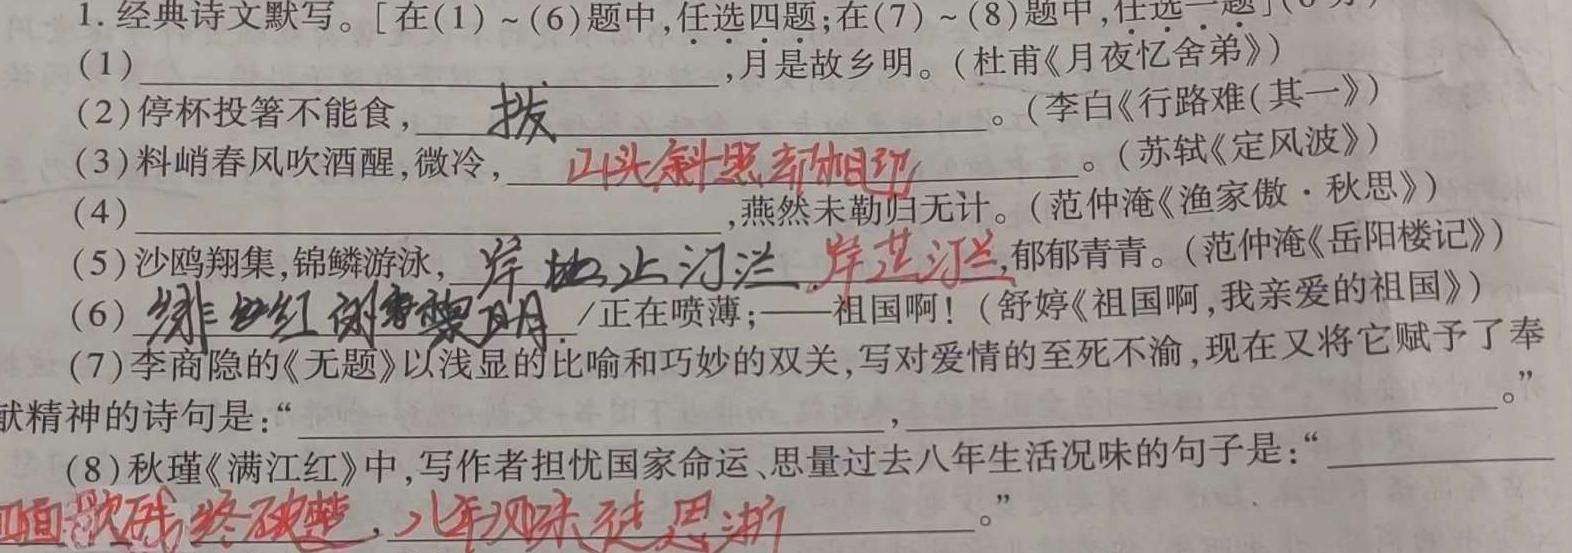 1. 经典诗文默写。[在(1)~(6)题中,任选四题;在(7)~(8)题中,任选一题]
(1) ,月是故乡明。(杜甫《月夜忆舍弟》)
(2)停杯投箸不能食, 拔 。(李白《行路难(其一》)
(3)料峭春风吹酒醒,微冷, 山头斜照却相迎 。(苏轼《定风波》)
(4) ,燕然未勒归无计。(范仲淹《渔家傲·秋思》)
(5)沙鸥翔集,锦鳞游泳, 岸地止汀兰 岸芷汀兰,郁郁青青。(范仲淹《岳阳楼记》)
(6) 绯红 黎明 /正在喷薄;——祖国啊!(舒婷《祖国啊,我亲爱的祖国》)
(7)李商隐的《无题》以浅显的比喻和巧妙的双关,写对爱情的至死不渝,现在又将它赋予了奉
献精神的诗句是:“ , 。”
(8)秋瑾《满江红》中,写作者担忧国家命运、思量过去八年生活况味的句子是:“
四面歌残终破楚,八年风味徒思浙 。”